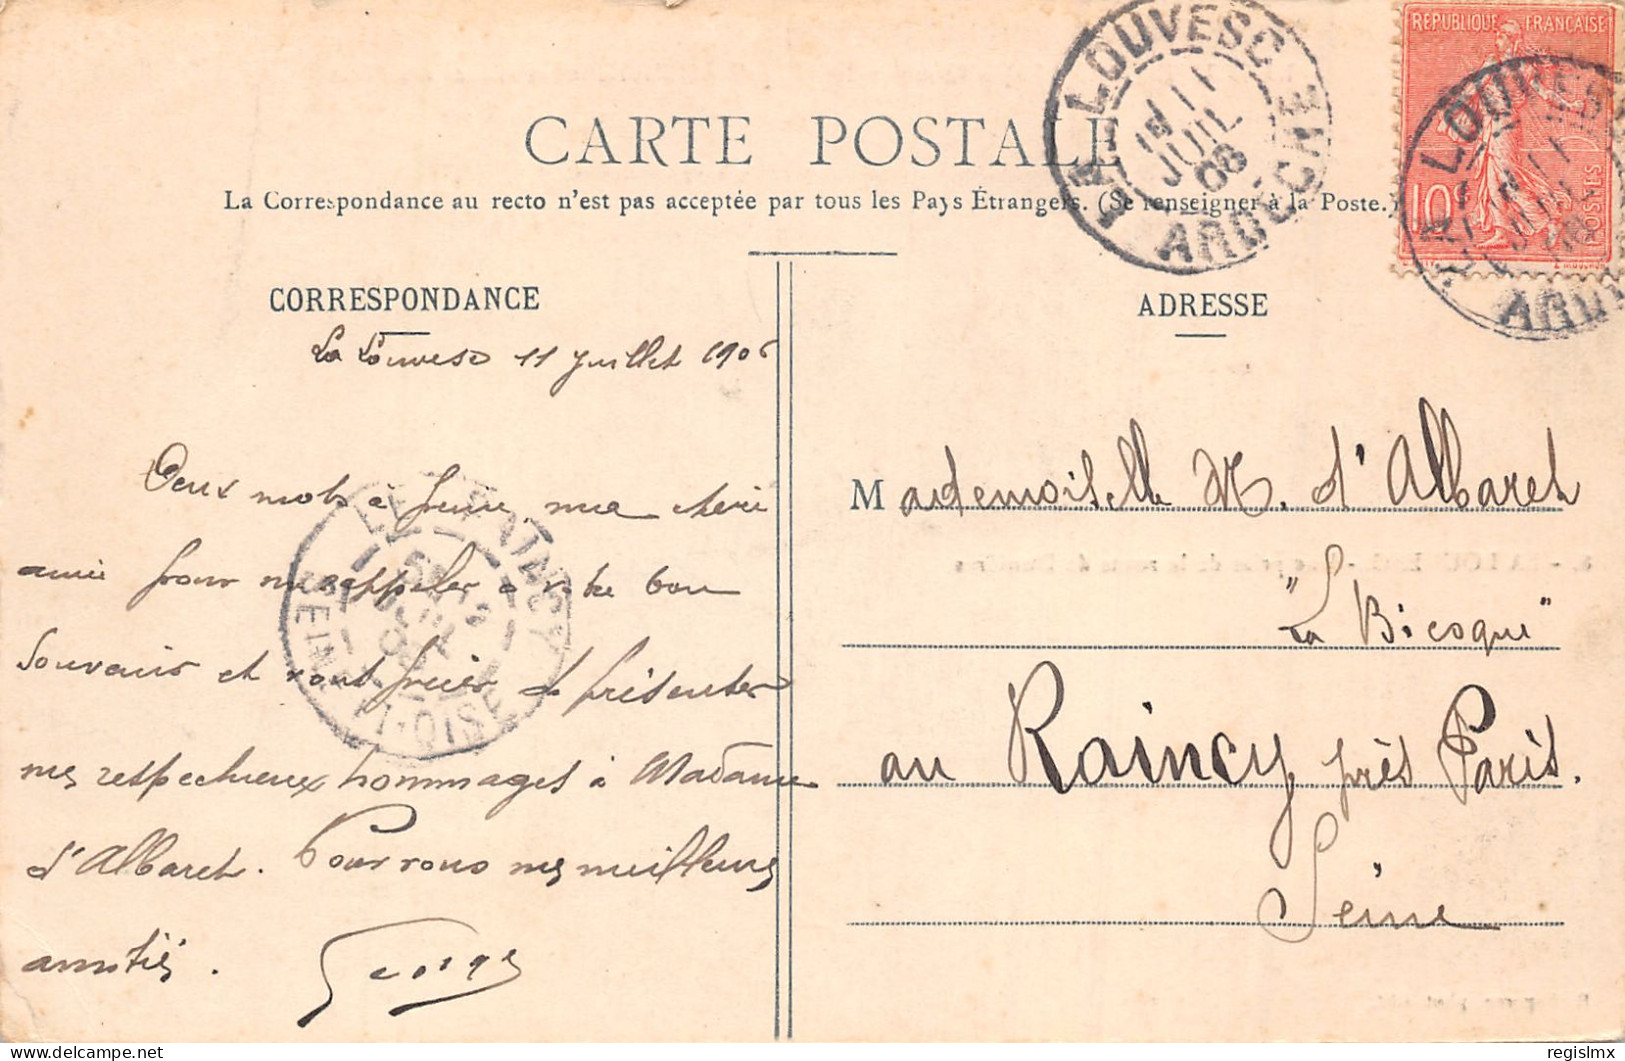 CARTE POSTALE
La Correspondance au recto n'est pas acceptée par tous les Pays Étrangers. (Se renseigner à la Poste.)
CORRESPONDANCE
La Louvesc 11 juillet 1906
Deux mots à peine, ma chère
amie pour me rappeler à votre bon
souvenir et vous prier de présenter
mes respectueux hommages à Madame
d'Albaret. Pour vous mes meilleures
amitiés.
Georges
ADRESSE
Mademoiselle M. d'Albaret
"La Bicoque"
au Raincy près Paris.
Seine
LA LOUVESC
ARDÈCHE
11
JUIL
06
REPUBLIQUE FRANÇAISE
10
POSTES
LA LOUVESC
ARD
LE RAINCY
SEINE-ET-OISE
delcampe.net
regislmx